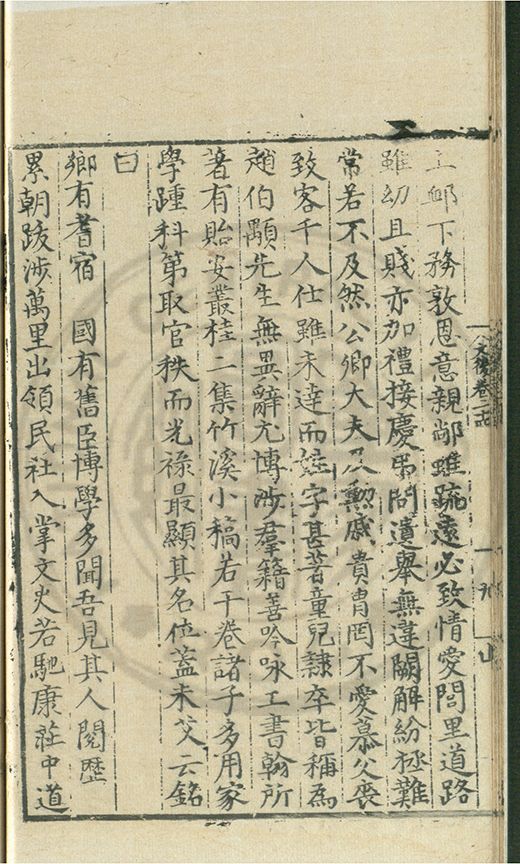 上卹下務敦恩意親鄰雖疏遠必致情愛閭里道路
雖幼且賤亦加禮接慶弔問遺舉無違闕解紛拯難
常若不及然公卿大夫及勳戚貴胄罔不愛慕父喪
致客千人仕雖未達而姓字甚著童兒隷卒皆稱爲
趙伯顒先生無異辭尤博涉羣籍善吟咏工書翰所
著有貽安叢桂二集竹溪小稿若干卷諸子多用家
學踵科第取官秩而光禄最顯其名位蓋未艾云銘
曰
鄉有耆宿 國有舊臣博學多聞吾見其人閱歴
累朝跋涉萬里出領民社入掌文史若馳康莊中道
文後卷三